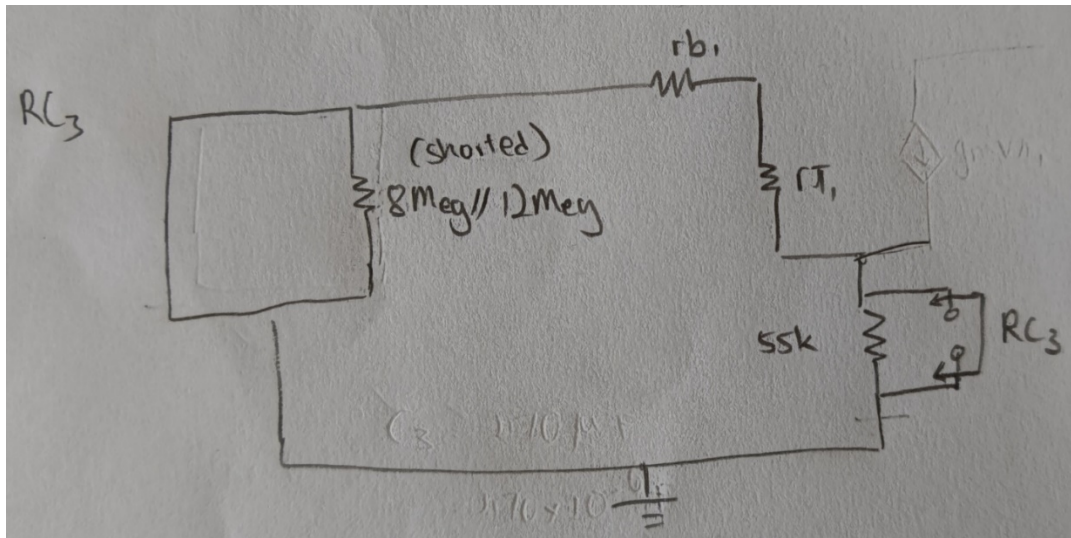 rb₁
RC₃
(shorted)
8Meg // 12Meg
rπ₁
gmvπ₁
55k
RC₃